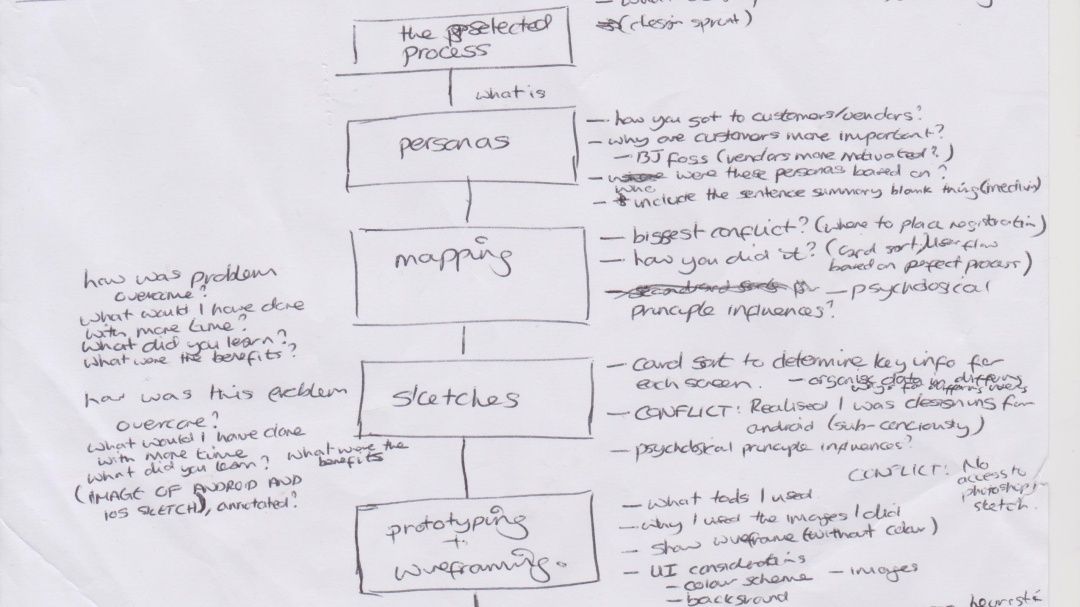 (design sprint)
the selected
process
what is
personas
— how you got to customers/vendors?
— why are customers more important?
— BJ Foss (vendors more motivated?)
were these personas based on?
who
include the sentence summary blank thing
mapping
— biggest conflict? (where to place registration)
— how you did it? (card sort, user flow
based on perfect process)
— psychological
principle influences?
how was problem
overcome?
what would I have done
with more time?
What did you learn?
What were the benefits?
sketches
— card sort to determine key info for
each screen. — organise data in differing
ways for differing needs
— CONFLICT: Realised I was designing for
android (sub-conciously)
— psychological principle influences?
how was this problem
overcome?
what would i have done
with more time
what did you learn? what were the
benefits
(IMAGE OF ANDROID AND
IOS SKETCH), annotated?
CONFLICT: No
access to
photoshop/
sketch.
prototyping
+
wireframing.
— what tools I used
— why I used the images I did
— show wireframe (without colour)
— UI considerations
— colour scheme — images
— background
heuristic